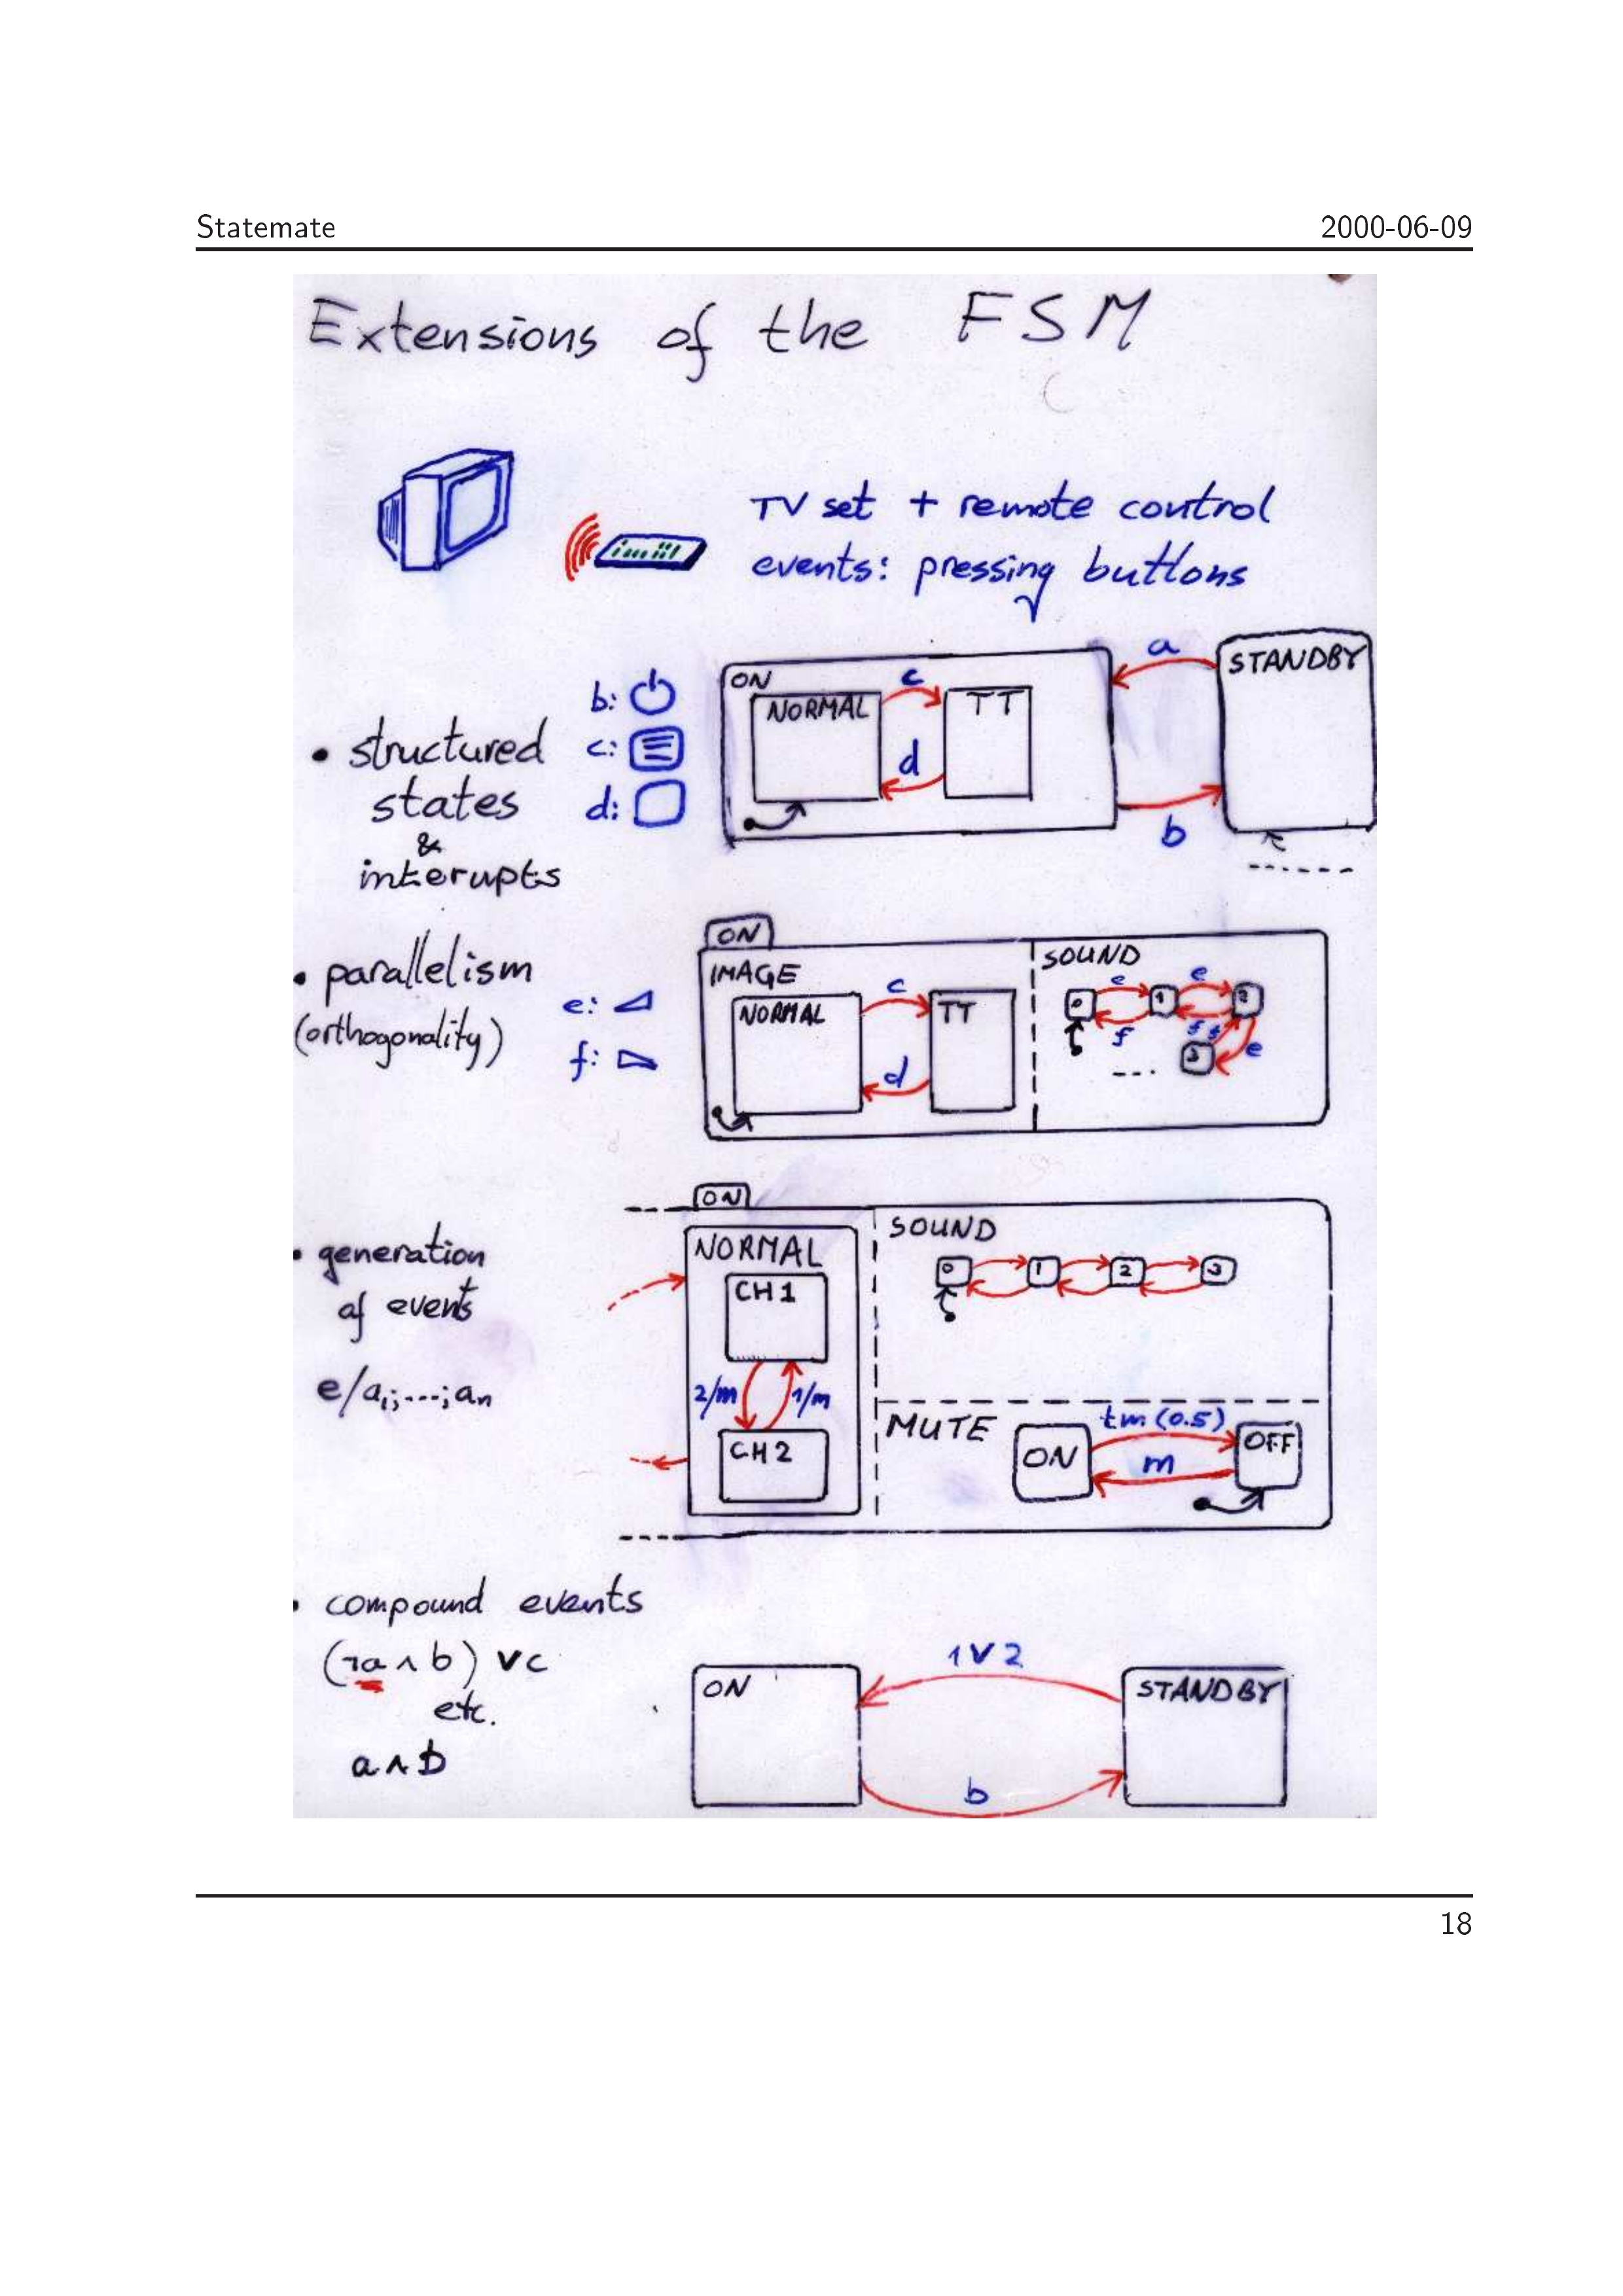 Statemate 2000-06-09
Extensions of the FSM
TV set + remote control
events: pressing buttons
• structured
states
&
interupts
b:
c:
d:
ON
NORMAL
TT
c
d
a
b
STANDBY
• parallelism
(orthogonality)
e:
f:
ON
IMAGE
NORMAL
TT
c
d
SOUND
0 1 2 3
e e
f f f e
....
• generation
of events
e/a₁;...;aₙ
ON
NORMAL
CH1
2/m 1/m
CH2
SOUND
0 1 2 3
MUTE
ON
tm(0.5)
m
OFF
• compound events
(¬a ∧ b) ∨ c
etc.
a ∧ b
ON
1 ∨ 2
b
STANDBY
18